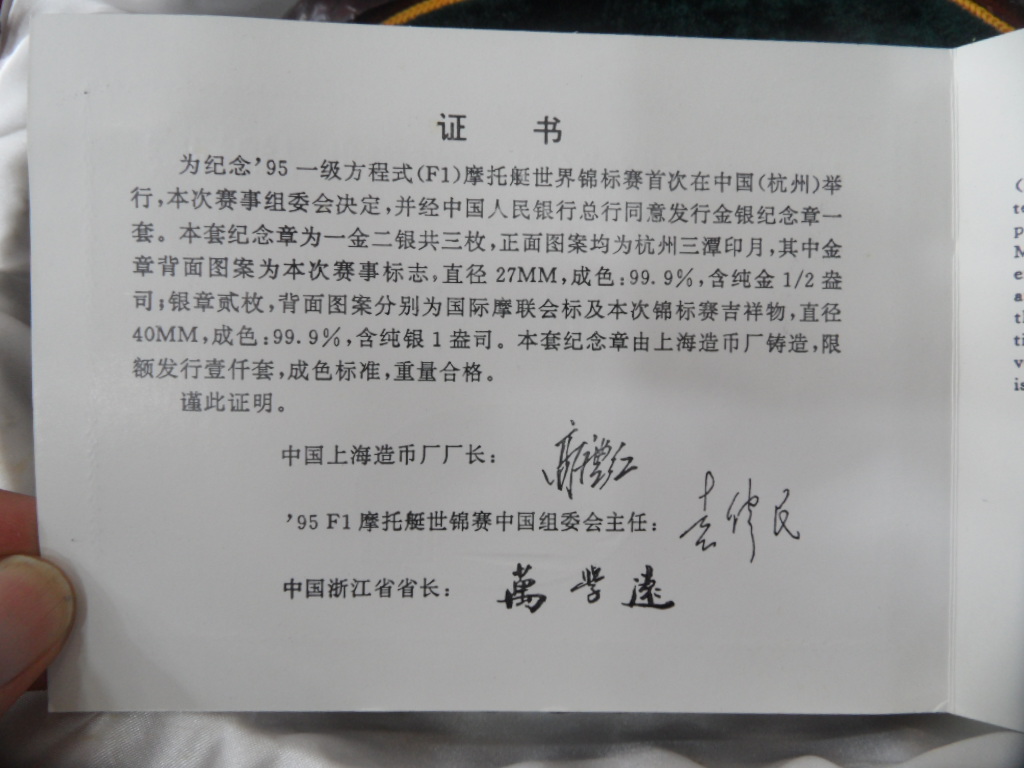 证 书
为纪念’95一级方程式(F1)摩托艇世界锦标赛首次在中国(杭州)举
行,本次赛事组委会决定,并经中国人民银行总行同意发行金银纪念章一
套。本套纪念章为一金二银共三枚,正面图案均为杭州三潭印月,其中金
章背面图案为本次赛事标志,直径27MM,成色:99.9%,含纯金1/2盎
司;银章贰枚,背面图案分别为国际摩联会标及本次锦标赛吉祥物,直径
40MM,成色:99.9%,含纯银1盎司。本套纪念章由上海造币厂铸造,限
额发行壹仟套,成色标准,重量合格。
谨此证明。
中国上海造币厂厂长:
’95 F1摩托艇世锦赛中国组委会主任: 袁伟民
中国浙江省省长: 萬学遠